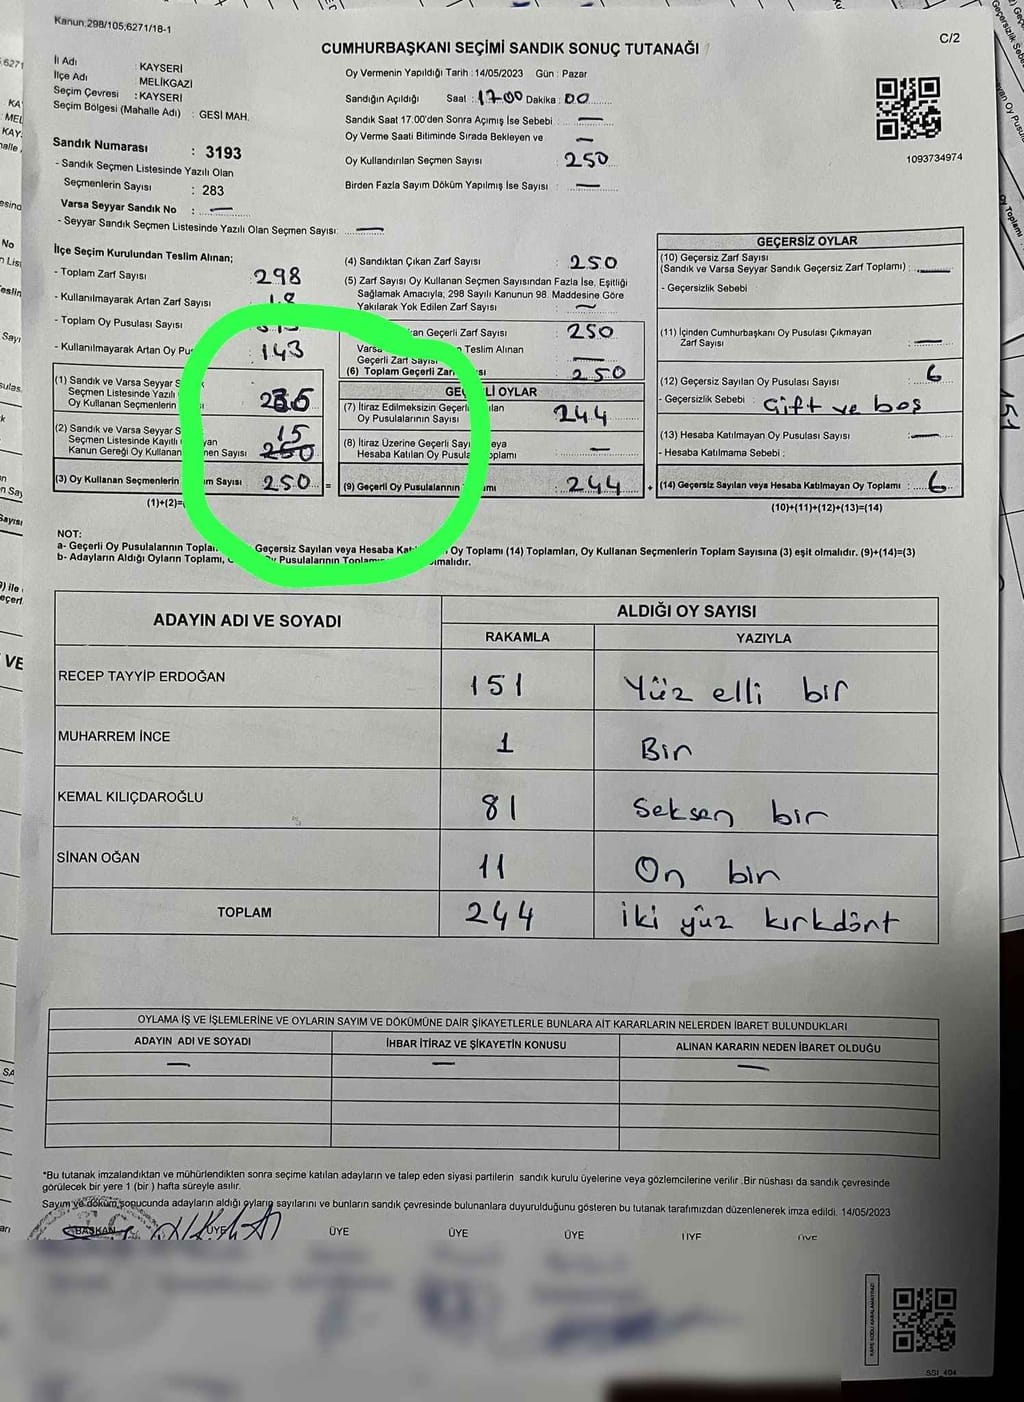 Kanun:298/105,6271/18-1
C/2
CUMHURBAŞKANI SEÇİMİ SANDIK SONUÇ TUTANAĞI
İl Adı : KAYSERİ
İlçe Adı : MELİKGAZİ
Seçim Çevresi : KAYSERİ
Seçim Bölgesi (Mahalle Adı) : GESİ MAH.
Sandık Numarası : 3193
- Sandık Seçmen Listesinde Yazılı Olan
Seçmenlerin Sayısı : 283
Varsa Seyyar Sandık No : —
- Seyyar Sandık Seçmen Listesinde Yazılı Olan Seçmen Sayısı: —
Oy Vermenin Yapıldığı Tarih : 14/05/2023 Gün : Pazar
Sandığın Açıldığı Saat : 17.00 Dakika : 00
Sandık Saat 17.00'den Sonra Açımış İse Sebebi : —
Oy Verme Saati Bitiminde Sırada Bekleyen ve —
Oy Kullandırılan Seçmen Sayısı 250
Birden Fazla Sayım Döküm Yapılmış İse Sayısı : —
1093734974
İlçe Seçim Kurulundan Teslim Alınan;
- Toplam Zarf Sayısı : 298
- Kullanılmayarak Artan Zarf Sayısı
- Toplam Oy Pusulası Sayısı
- Kullanılmayarak Artan Oy Pu : 143
(1) Sandık ve Varsa Seyyar S
Seçmen Listesinde Yazılı
Oy Kullanan Seçmenlerin
(2) Sandık ve Varsa Seyyar S 15
Seçmen Listesinde Kayıtlı yan
Kanun Gereği Oy Kullanan men Sayısı 250
(3) Oy Kullanan Seçmenlerin m Sayısı 250 =
(1)+(2)=
(4) Sandıktan Çıkan Zarf Sayısı : 250
(5) Zarf Sayısı Oy Kullanan Seçmen Sayısından Fazla İse, Eşitliği
Sağlamak Amacıyla; 298 Sayılı Kanunun 98. Maddesine Göre
Yakılarak Yok Edilen Zarf Sayısı : —
an Geçerli Zarf Sayısı : 250
Varsa n Teslim Alınan
Geçerli Zarf Sayısı —
(6) Toplam Geçerli Zar sı : 250
GEÇ Lİ OYLAR
(7) İtiraz Edilmeksizin Geçerli ılan
Oy Pusulalarının Sayısı 244
(8) İtiraz Üzerine Geçerli Sayı eya
Hesaba Katılan Oy Pusula oplamı —
(9) Geçerli Oy Pusulalarının amı : 244 +
GEÇERSİZ OYLAR
(10) Geçersiz Zarf Sayısı
(Sandık ve Varsa Seyyar Sandık Geçersiz Zarf Toplamı) : —
- Geçersizlik Sebebi :
(11) İçinden Cumhurbaşkanı Oy Pusulası Çıkmayan
Zarf Sayısı : —
(12) Geçersiz Sayılan Oy Pusulası Sayısı : 6
- Geçersizlik Sebebi : Çift ve boş
(13) Hesaba Katılmayan Oy Pusulası Sayısı : —
- Hesaba Katılmama Sebebi :
(14) Geçersiz Sayılan veya Hesaba Katılmayan Oy Toplamı : 6
(10)+(11)+(12)+(13)=(14)
NOT:
a- Geçerli Oy Pusulalarının Topla Geçersiz Sayılan veya Hesaba Kat Oy Toplamı (14) Toplamları, Oy Kullanan Seçmenlerin Toplam Sayısına (3) eşit olmalıdır. (9)+(14)=(3)
b- Adayların Aldığı Oyların Toplamı, Pusulalarının Toplam lmalıdır.
ADAYIN ADI VE SOYADI
ALDIĞI OY SAYISI
RAKAMLA YAZIYLA
RECEP TAYYİP ERDOĞAN 151 Yüz elli bir
MUHARREM İNCE 1 Bir
KEMAL KILIÇDAROĞLU 81 Seksen bir
SİNAN OĞAN 11 On bir
TOPLAM 244 iki yüz kırkdört
OYLAMA İŞ VE İŞLEMLERİNE VE OYLARIN SAYIM VE DÖKÜMÜNE DAİR ŞİKAYETLERLE BUNLARA AİT KARARLARIN NELERDEN İBARET BULUNDUKLARI
ADAYIN ADI VE SOYADI İHBAR İTİRAZ VE ŞİKAYETİN KONUSU ALINAN KARARIN NEDEN İBARET OLDUĞU
— — —
*Bu tutanak imzalandıktan ve mühürlendikten sonra seçime katılan adayların ve talep eden siyasi partilerin sandık kurulu üyelerine veya gözlemcilerine verilir .Bir nüshası da sandık çevresinde
görülecek bir yere 1 (bir ) hafta süreyle asılır.
Sayım ve döküm sonucunda adayların aldığı oyların sayılarını ve bunların sandık çevresinde bulunanlara duyurulduğunu gösteren bu tutanak tarafımızdan düzenlenerek imza edildi. 14/05/2023
BAŞKAN ÜYE ÜYE ÜYE ÜYE ÜYE ÜYE